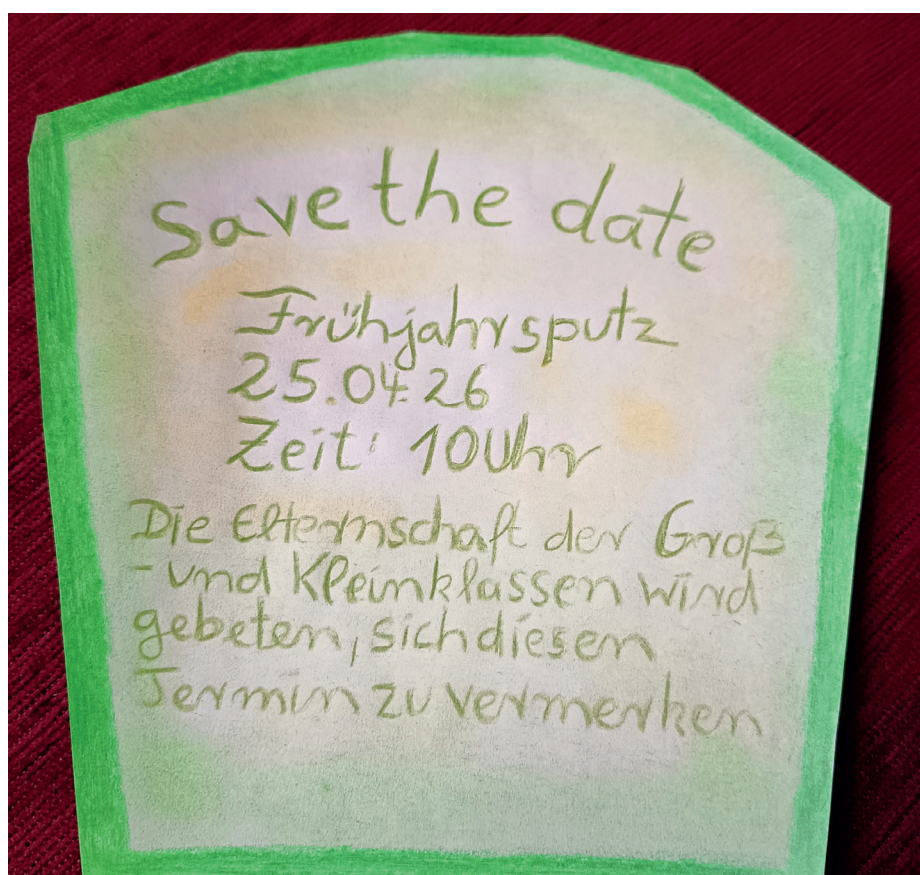 Save the date
Frühjahrsputz
25.04.26
Zeit: 10 Uhr
Die Elternschaft der Groß
-und Kleinklassen wird
gebeten, sich diesen
Termin zu vermerken